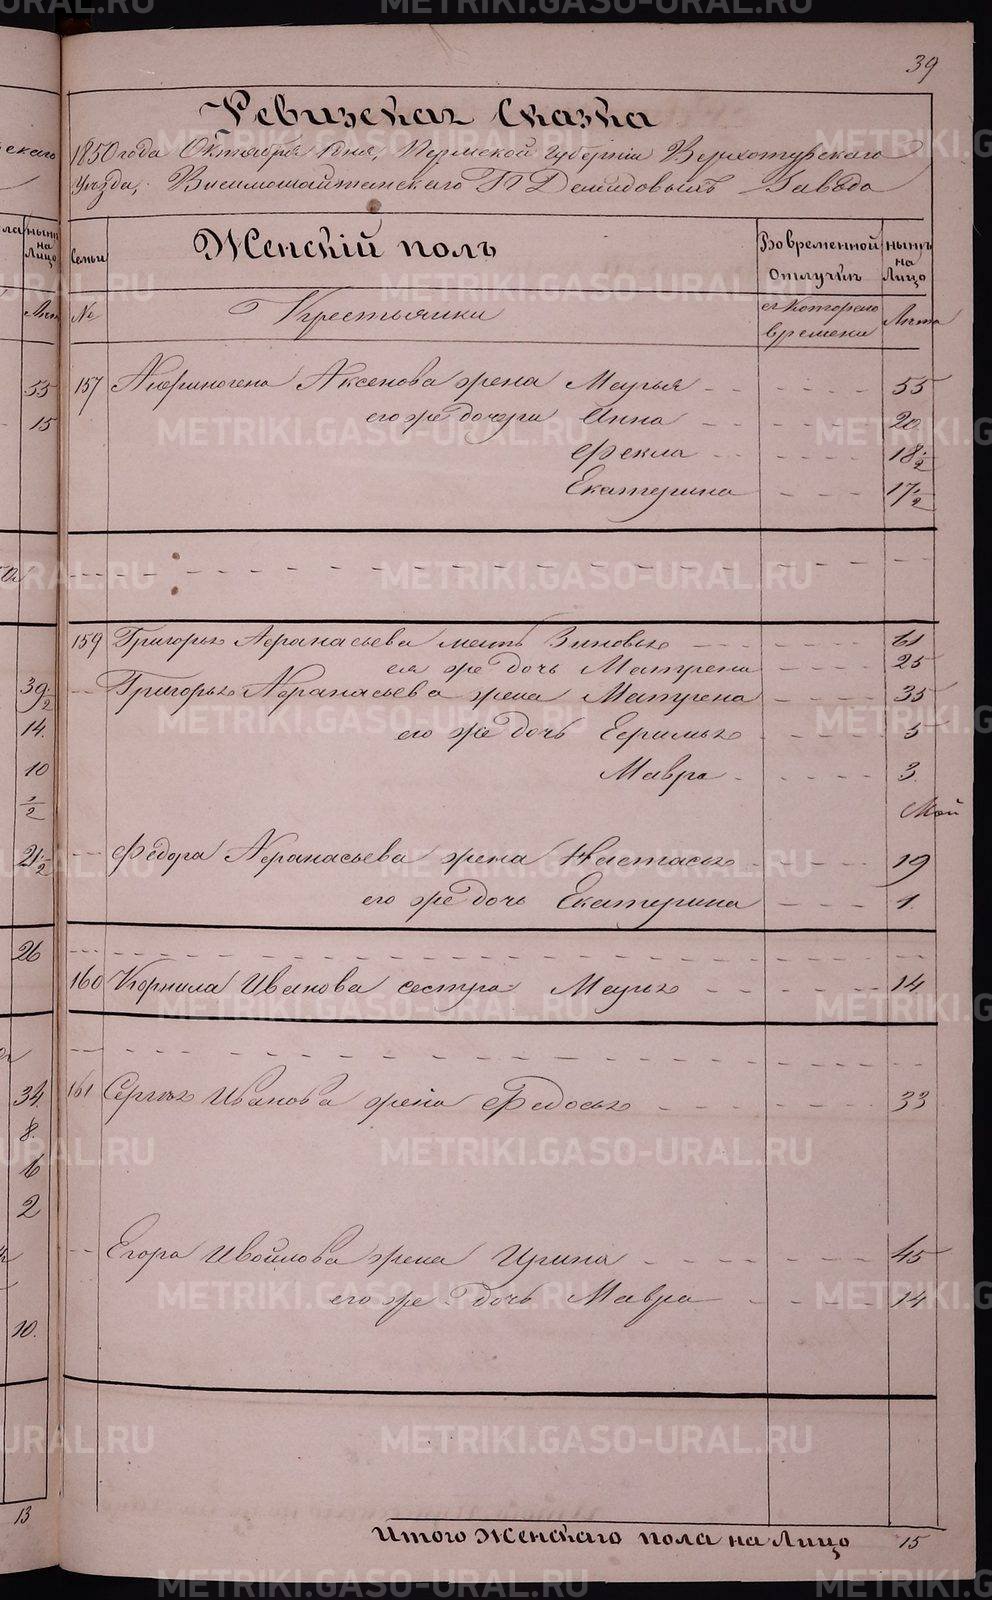 39
Ревизская Сказка
1850 года Октября дня, Пермской Губернии Верхотурскаго
Уезда, Висимошайтанскаго П Демидовыхъ Завода
Семьи
Женскій полъ
Во временной отлучкѣ
нынѣ на Лицо
№
Крестьянки
съ Котораго времени
Лѣта
157 Афиногена Аксенова жена Марья 55
его же дочери Анна 20
Фекла 18 1/2
Екатерина 17 1/2
159 Григорья Афанасьева мать Зиновья 61
ея же дочь Матрена 25
Григорья Афанасьева жена Матрена 35
его же дочь Ефимья 5
Мавра 3
Федора Афанасьева жена Настасья 19
его же дочь Екатерина 1
160 Корнила Иванова сестра Марья 14
161 Сергея Иванова жена Федосья 33
Егора Ивойлова жена Ирина 45
его же дочь Мавра 14
Итого Женскаго пола на Лицо 15
скаго
нынѣ на Лицо
55
15
39 1/2
14
10
1/2
21 1/2
26
34
8
6
2
10
13
METRIKI.GASO-URAL.RU